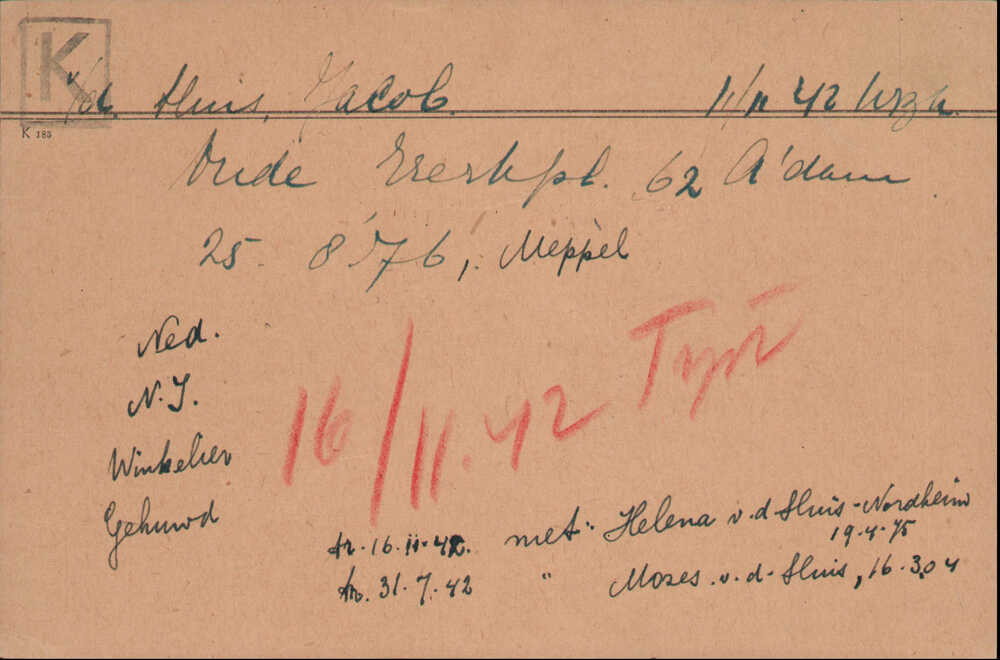 K
v/d. Sluis, Jacob. 11/11 42 Wzk.
K 183
Oude 62 A'dam
25. 8'76, Meppel
Ned.
N.I.
16/11.42 Tspt
Winkelier
Gehuwd
tr. 16.11.42. met Helena v.d Sluis-Nordheim
19.4.75
tr. 31.7.42 " Mozes v.d. Sluis, 16.3.04